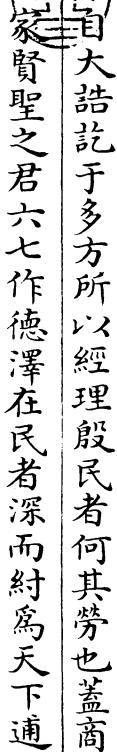 自大誥訖于多方所以經理殷民者何其勞也蓋商
家賢聖之君六七作德澤在民者深而紂爲天下逋